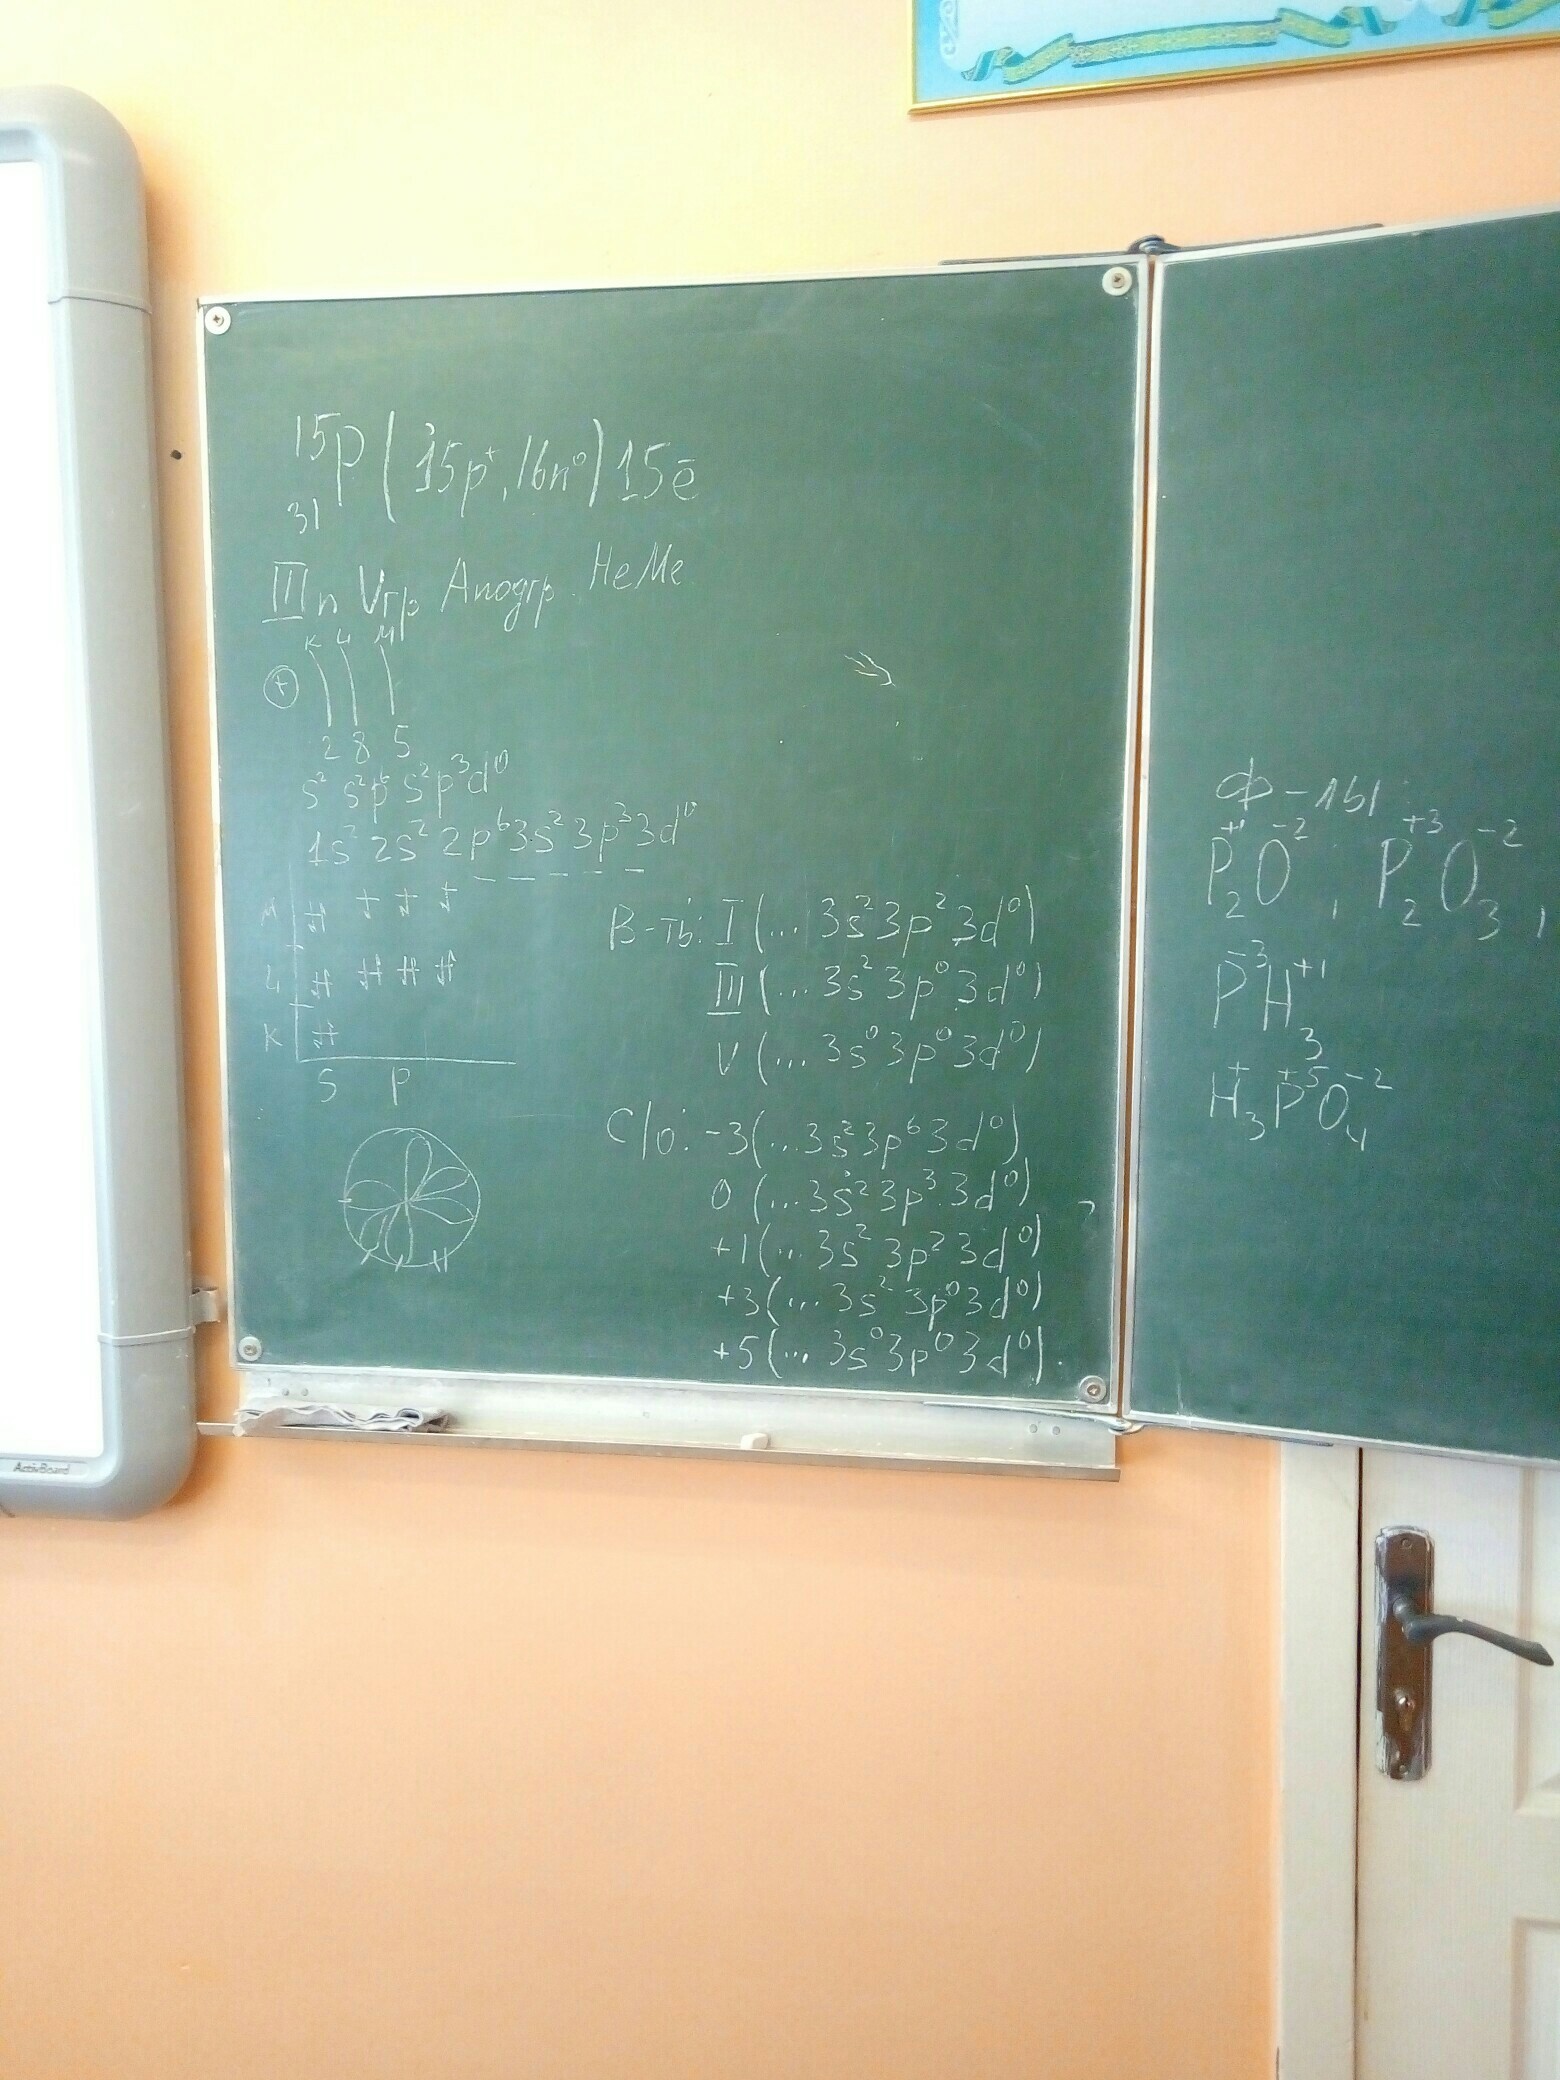 15
P (15p⁺, 16n⁰) 15ē
31
III п Vгр Аподгр. НеМе
К L М
+
2 8 5
s² s²p⁶ s²p³d⁰
1s² 2s² 2p⁶ 3s² 3p³ 3d⁰
М
L
К
S P
В-ть: I (... 3s² 3p² 3d⁰)
III (... 3s² 3p⁰ 3d⁰)
V (... 3s⁰ 3p⁰ 3d⁰)
С/о: -3 (... 3s² 3p⁶ 3d⁰)
0 (... 3s² 3p³ 3d⁰)
+1 (... 3s² 3p² 3d⁰)
+3 (... 3s² 3p⁰ 3d⁰)
+5 (... 3s⁰ 3p⁰ 3d⁰).
Ф-лы:
P₂⁺¹O⁻², P₂⁺³O₃⁻²,
P⁻³H₃⁺¹
H₃⁺P⁺⁵O₄⁻²
ActivBoard